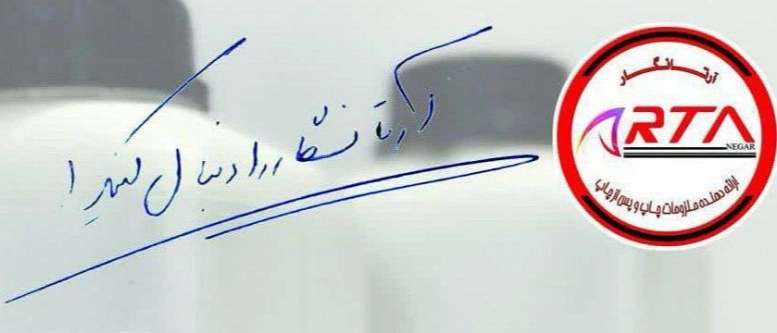 آرتانگار را دنبال کنید!
آرتانگار
ARTA
NEGAR
ارائه دهنده ملزومات چاپ و پس از چاپ